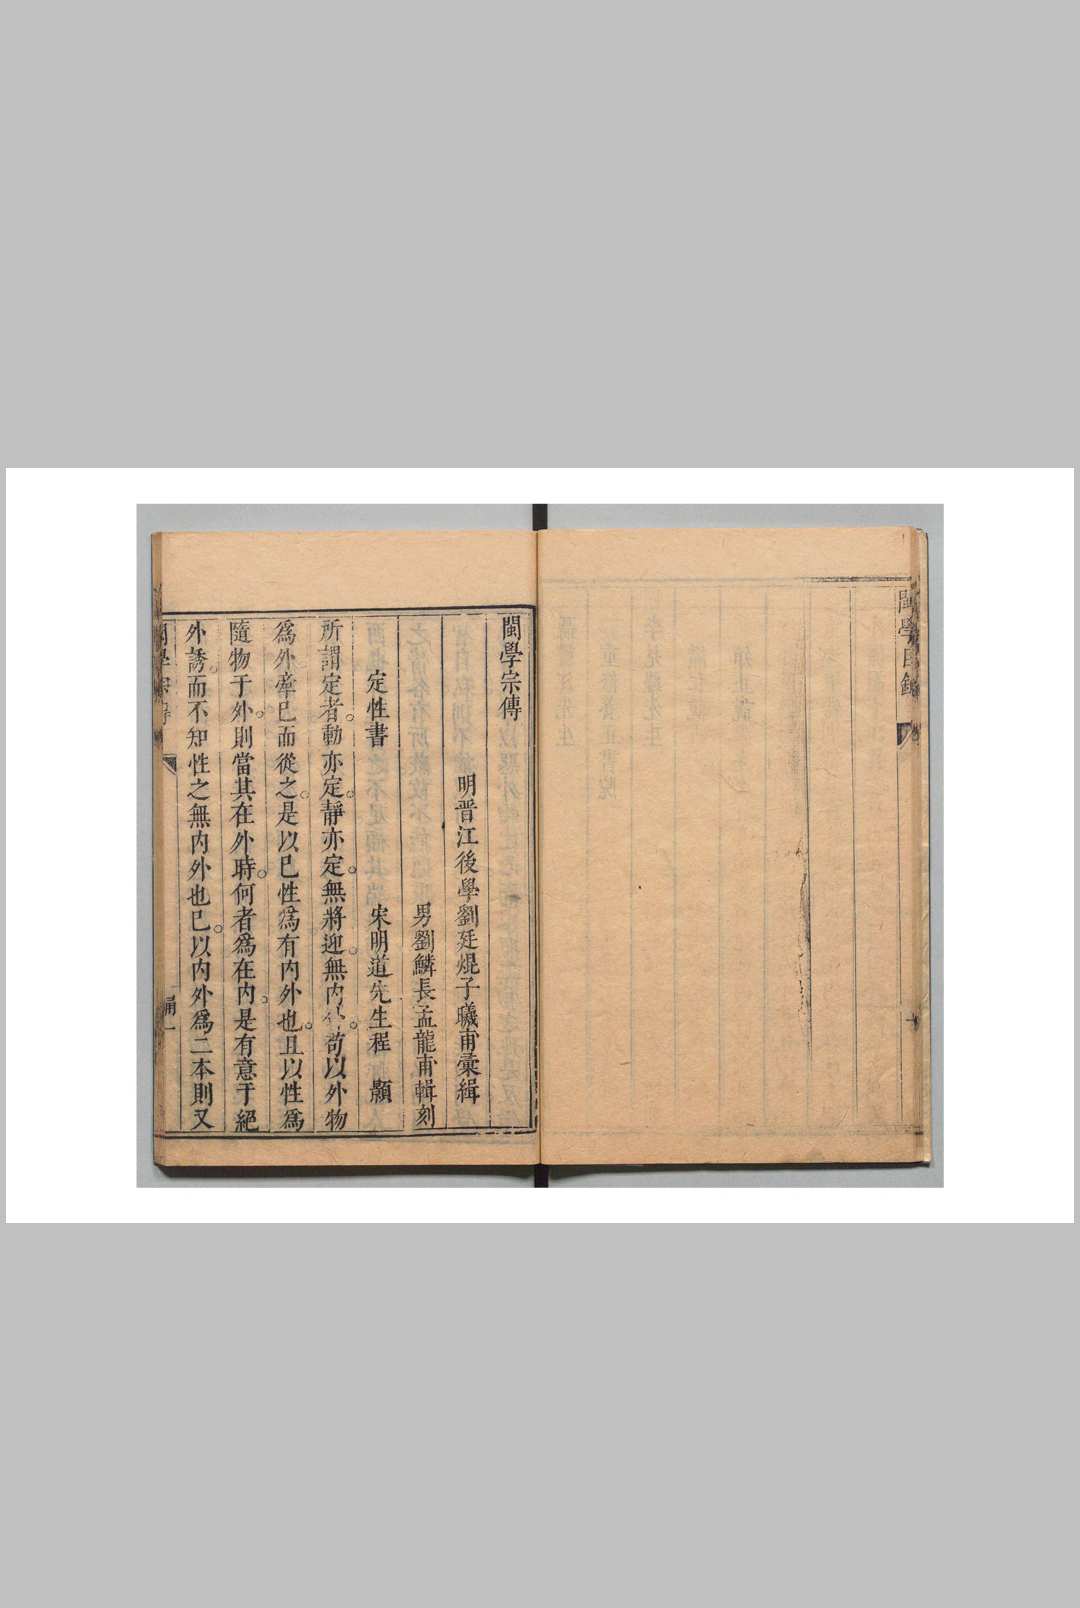 閩學目錄
閩學宗傳
明晋江後學劉廷焜子曦甫彙緝
男劉鱗長孟龍甫輯刻
定性書　宋明道先生程　顥
所謂定者。動亦定。靜亦定。無將迎。無内外。苟以外物
爲外牽已而從之。是以已性爲有内外也。且以性爲
隨物于外。則當其在外時。何者爲在内。是有意于絕
外誘。而不知性之無内外也。已以内外爲二本則又